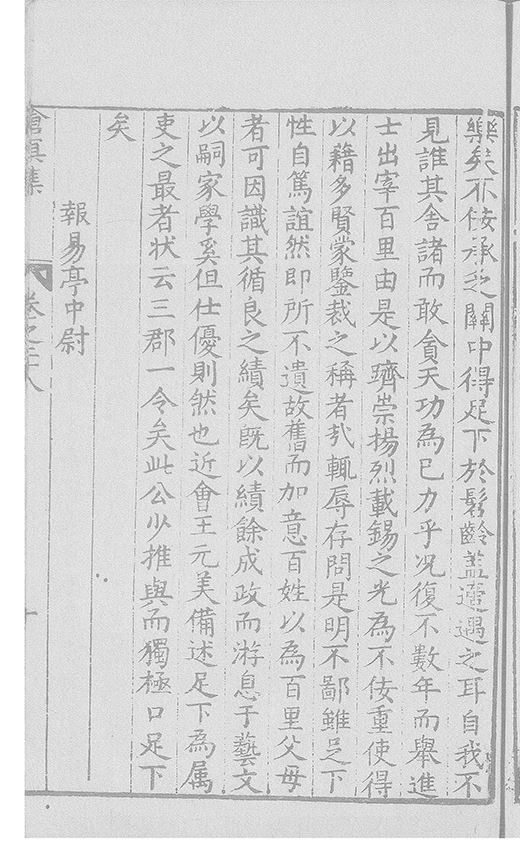 樂矣不佞承乏關中得足下於髫齡蓋遭遇之耳自我不
見誰其舍諸而敢貪天功為已力乎况復不數年而舉進
士出宰百里由是以躋崇揚烈載錫之光為不佞重使得
以藉多賢蒙鑒裁之稱者孔輒辱存問是明不鄙雖足下
性自篤誼然即所不遺故舊而加意百姓以為百里父母
者可因識其循良之績矣既以績餘成政而游息于藝文
以嗣家學奚但仕優則然也近會王元美備述足下為属
吏之最者状云三郡一令矣此公少推與而獨極口足下
矣
報易亭中尉
滄溟集
卷之二十八